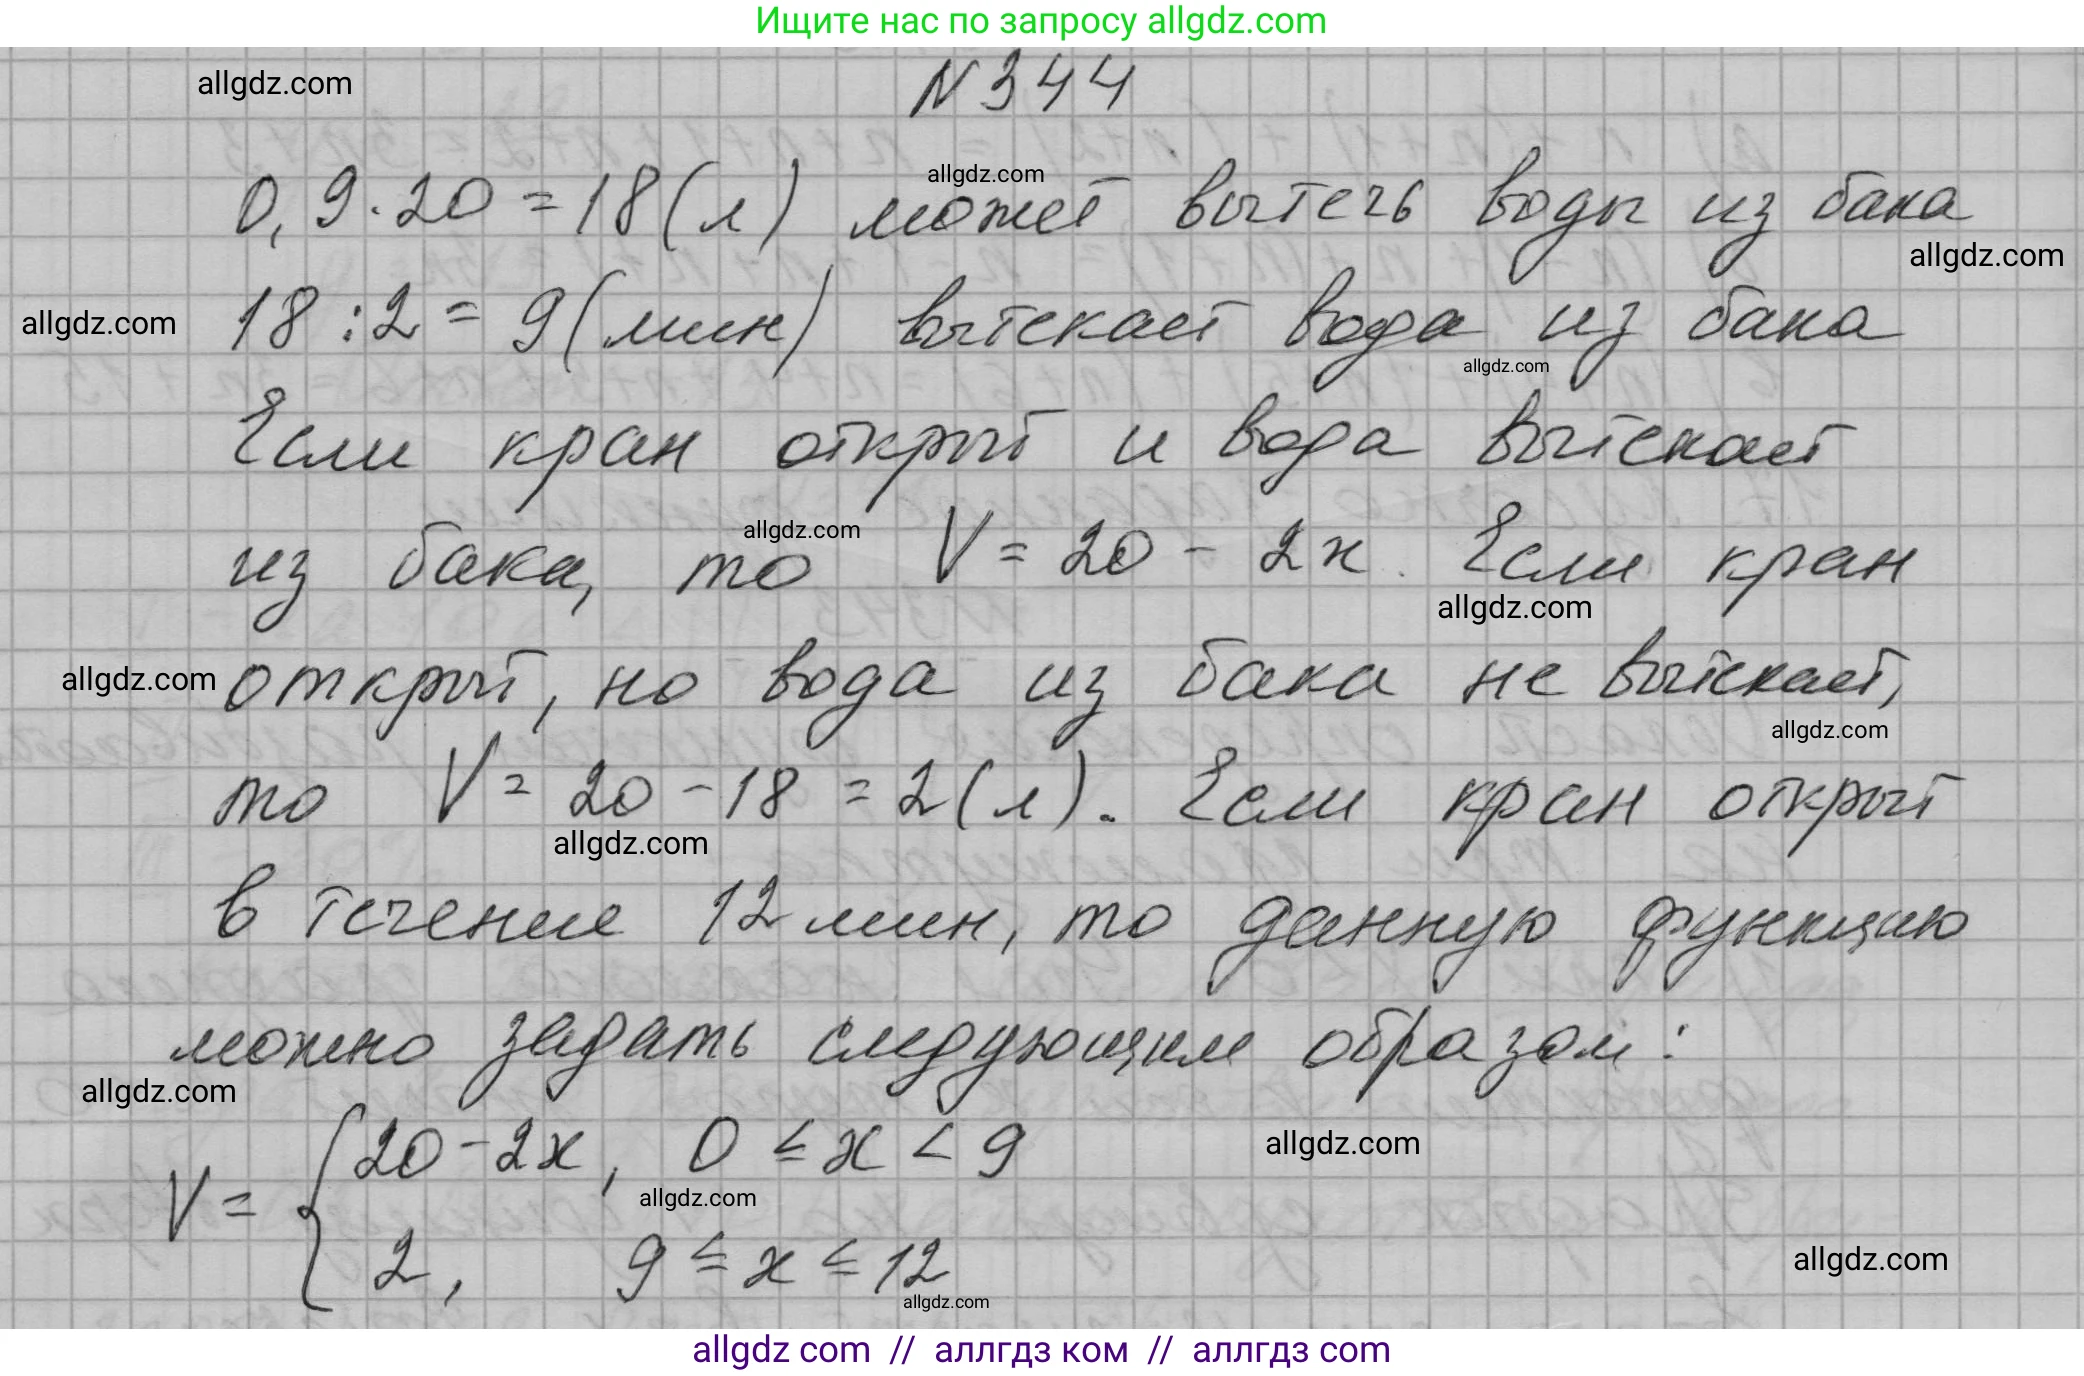 Ищите нас по запросу allgdz.com
allgdz.com
N 344
allgdz.com
0,9·20=18(л) может вытечь воды из бака
allgdz.com
18:2=9(мин) вытекает вода из бака
allgdz.com
allgdz.com
Если кран открыт и вода вытекает
allgdz.com
из бака, то V=20-2x. Если кран
allgdz.com
allgdz.com
открыт, но вода из бака не вытекает,
allgdz.com
то V=20-18=2(л). Если кран открыт
allgdz.com
в течение 12 мин, то данную функцию
можно задать следующим образом:
allgdz.com
V={20-2x, 0≤x<9
allgdz.com
allgdz.com
2, 9≤x≤12
allgdz.com
allgdz.com
allgdz com // аллгдз ком // аллгдз com